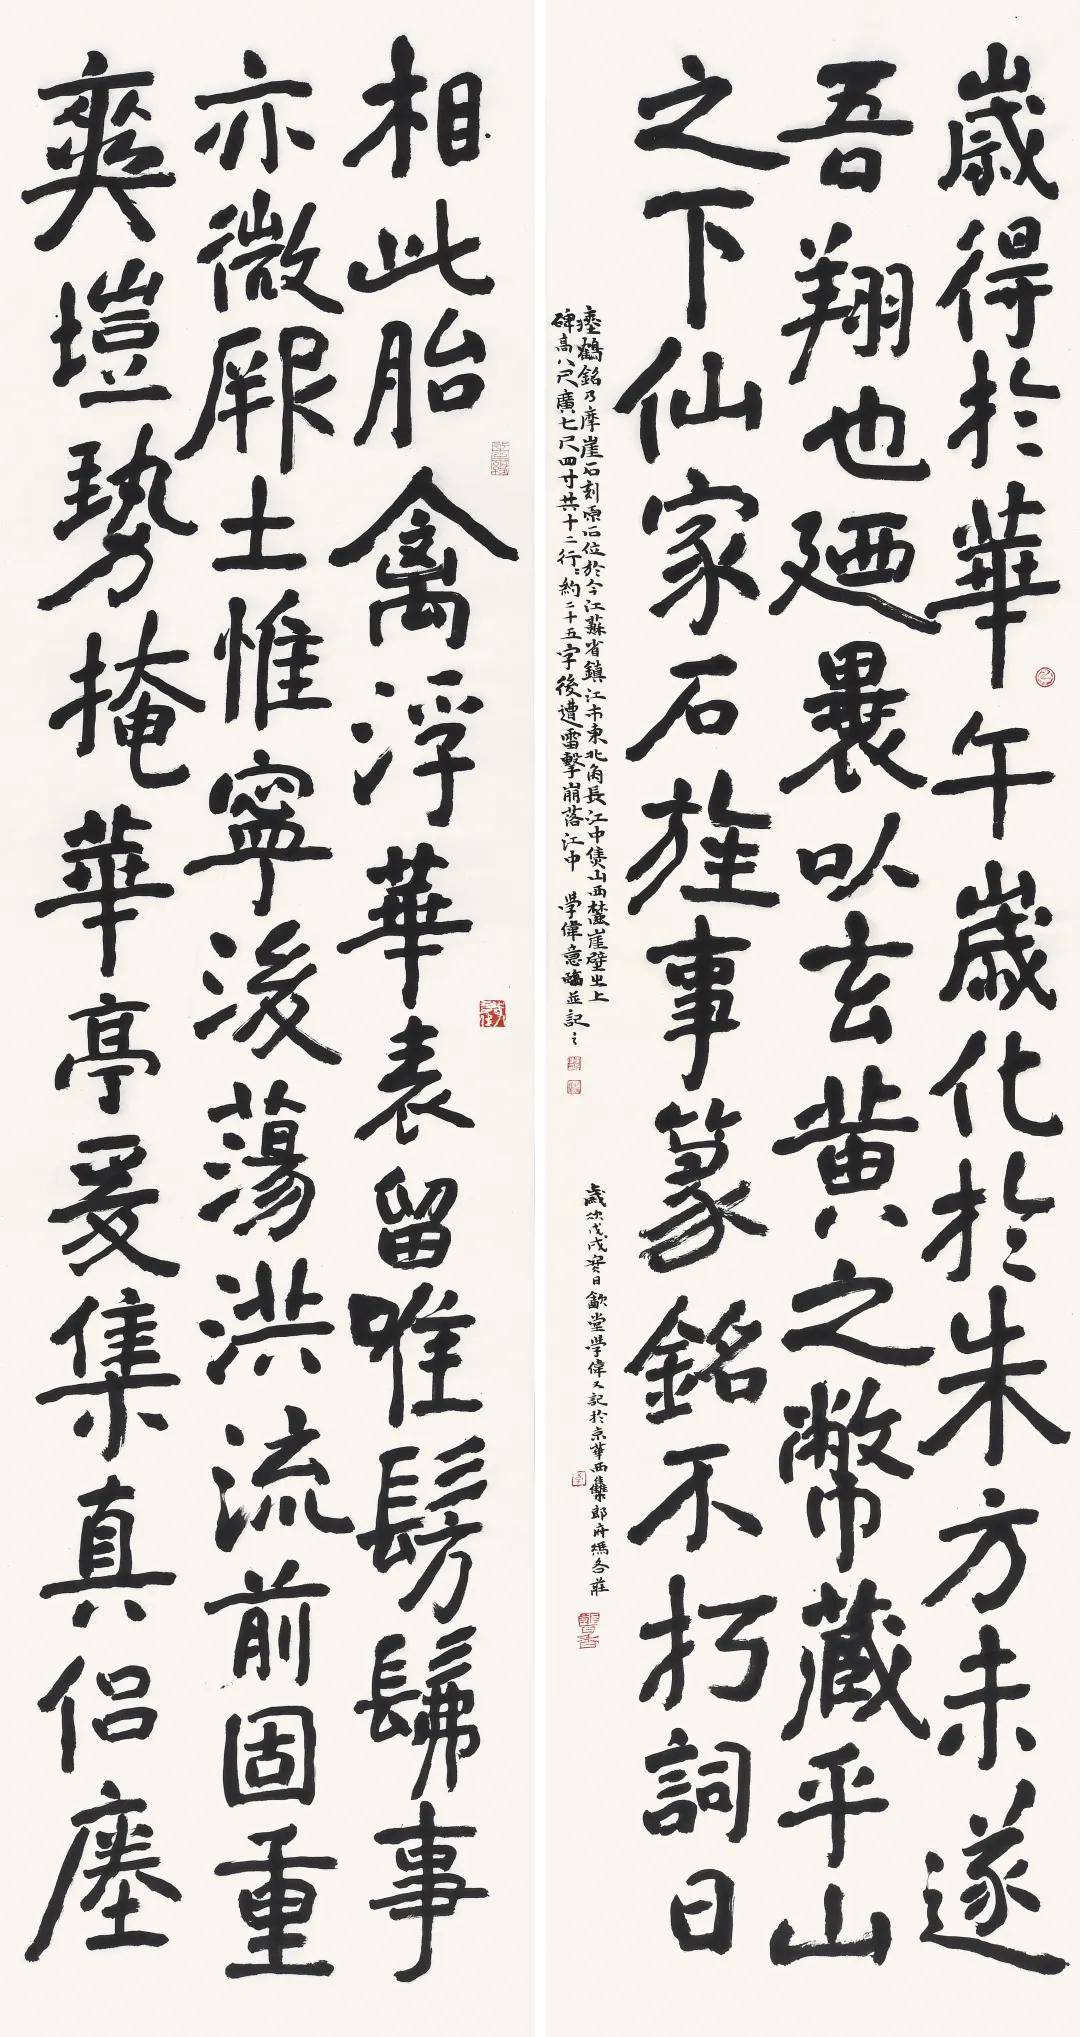 歲得於華午歲化於朱方未遂
吾翔也廼裹以玄黃之幣藏乎山
之下仙家石旌事篆銘不朽詞曰
瘞鶴銘乃摩崖石刻原石位於今江蘇省鎮江市東北角長江中焦山西麓崖壁之上
碑高八尺廣七尺四寸共十二行行約二十五字後遭雷擊崩落江中 學偉意臨並記之
歲次戊戌寒日歙堂學偉又記於京華西集郎府馮各莊
相此胎禽浮華表留唯髣髴事
亦微厥土惟寧後蕩洪流前固重
爽塏勢掩華亭爰集真侶瘞